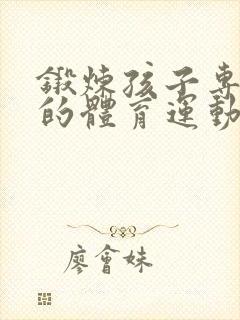 鍛煉孩子專
的體育運動
廖會妹